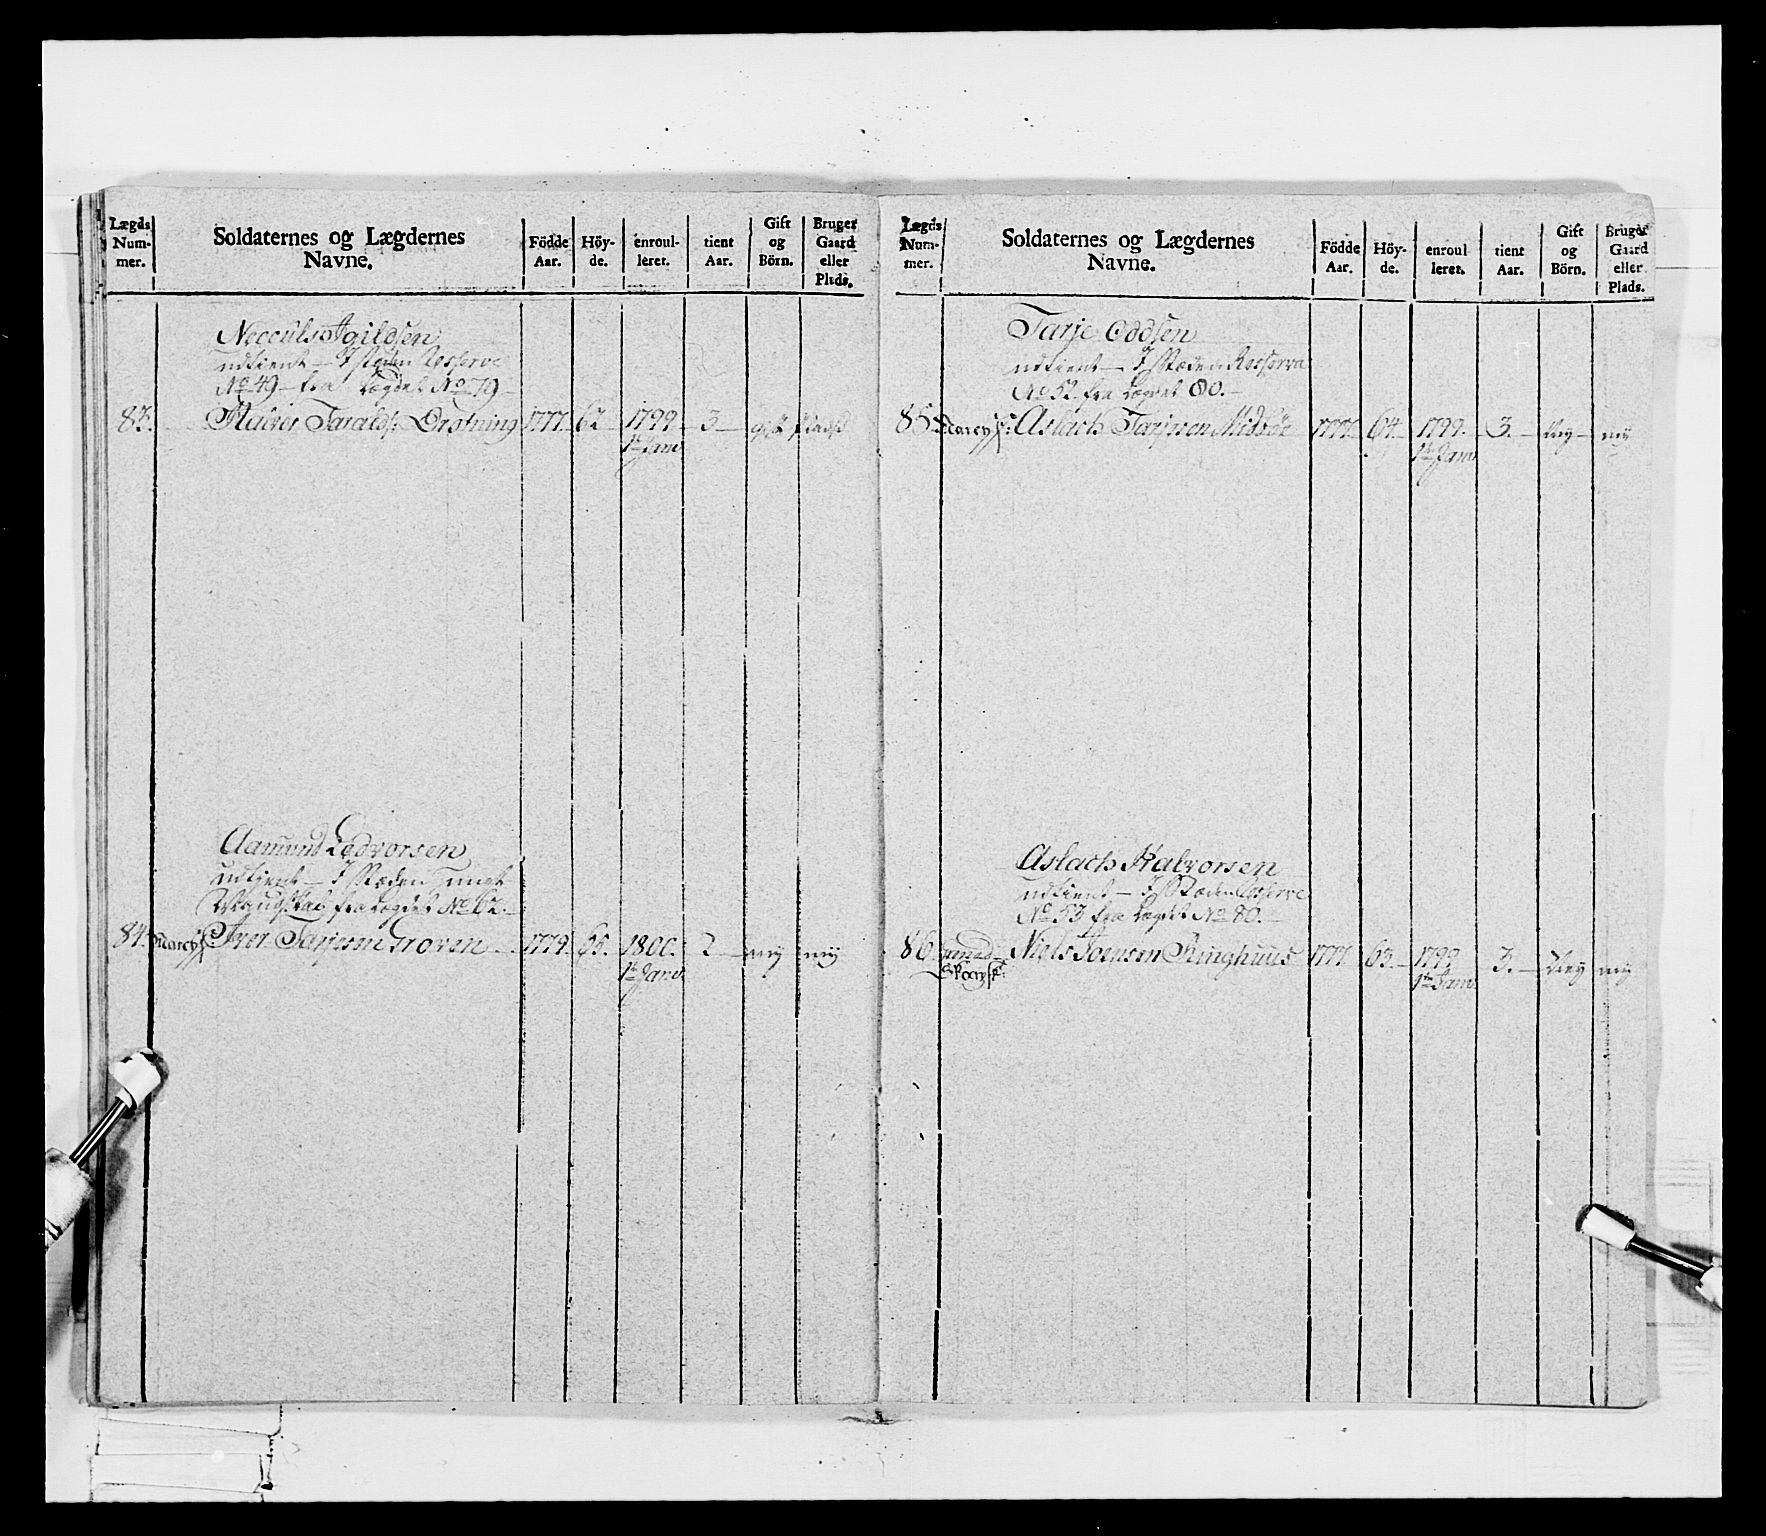 Lægds
Num-
mer.
Soldaternes og Lægdernes
Navne.
Födde
Aar.
Höy-
de.
enroul-
leret.
tient
Aar.
Gift
og
Börn.
Bruger
Gaard
eller
Plads.
Neculs Agildsen
udtient — I stæden Reserve
No 49 – fra Lægdet No 79
83. Halvor Taralds: Drotning 1777. 62 1799 3 gift plads
1te Janv
Aamund Ledvorsen
udtient — I Stæden
Mandskab fra Lægdet No 62.
84. Iver Tarjesen Groven 1779. 65. 1800. 2 ney ney
1te Janv
Lægds
Num-
mer.
Soldaternes og Lægdernes
Navne.
Födde
Aar.
Höy-
de.
enroul
leret.
tient
Aar.
Gift
og
Börn.
Bruger
Gaard
eller
Plads.
Tarje Oddsen
udtient — I Stæden Reserve
No 52 fra Lægdet 80.
85 Aslach Tarjesen Midböe 1777. 64. 1799. 3. Ney ney
1te Janv
Aslach Halvorsen
udtient — I Stæden Reserve
No 53 fra Lægdet No 80.
86. Niels Joensen Ringhuus 1777. 63. 1799 3. Ney ney
1te Janv